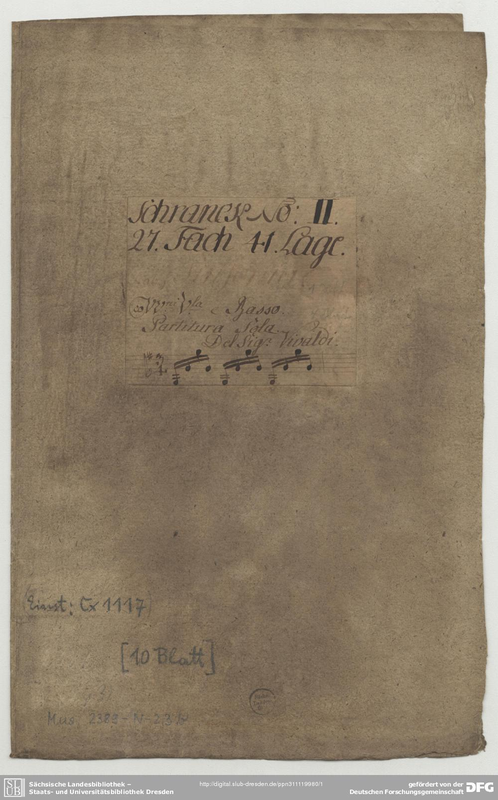 Schranck No: II.
27. Fach 11. Lage.
Co VVni Vla e Basso.
Partitura Sola
Del Sigr. Vivaldi.
Einst: Cx 1117
[10 Blatt]
Mus. 2389-N-
SLUB
Sächsische Landesbibliothek –
Staats- und Universitätsbibliothek Dresden
http://digital.slub-dresden.de/ppn311119986/1
gefördert von der
Deutschen Forschungsgemeinschaft
DFG